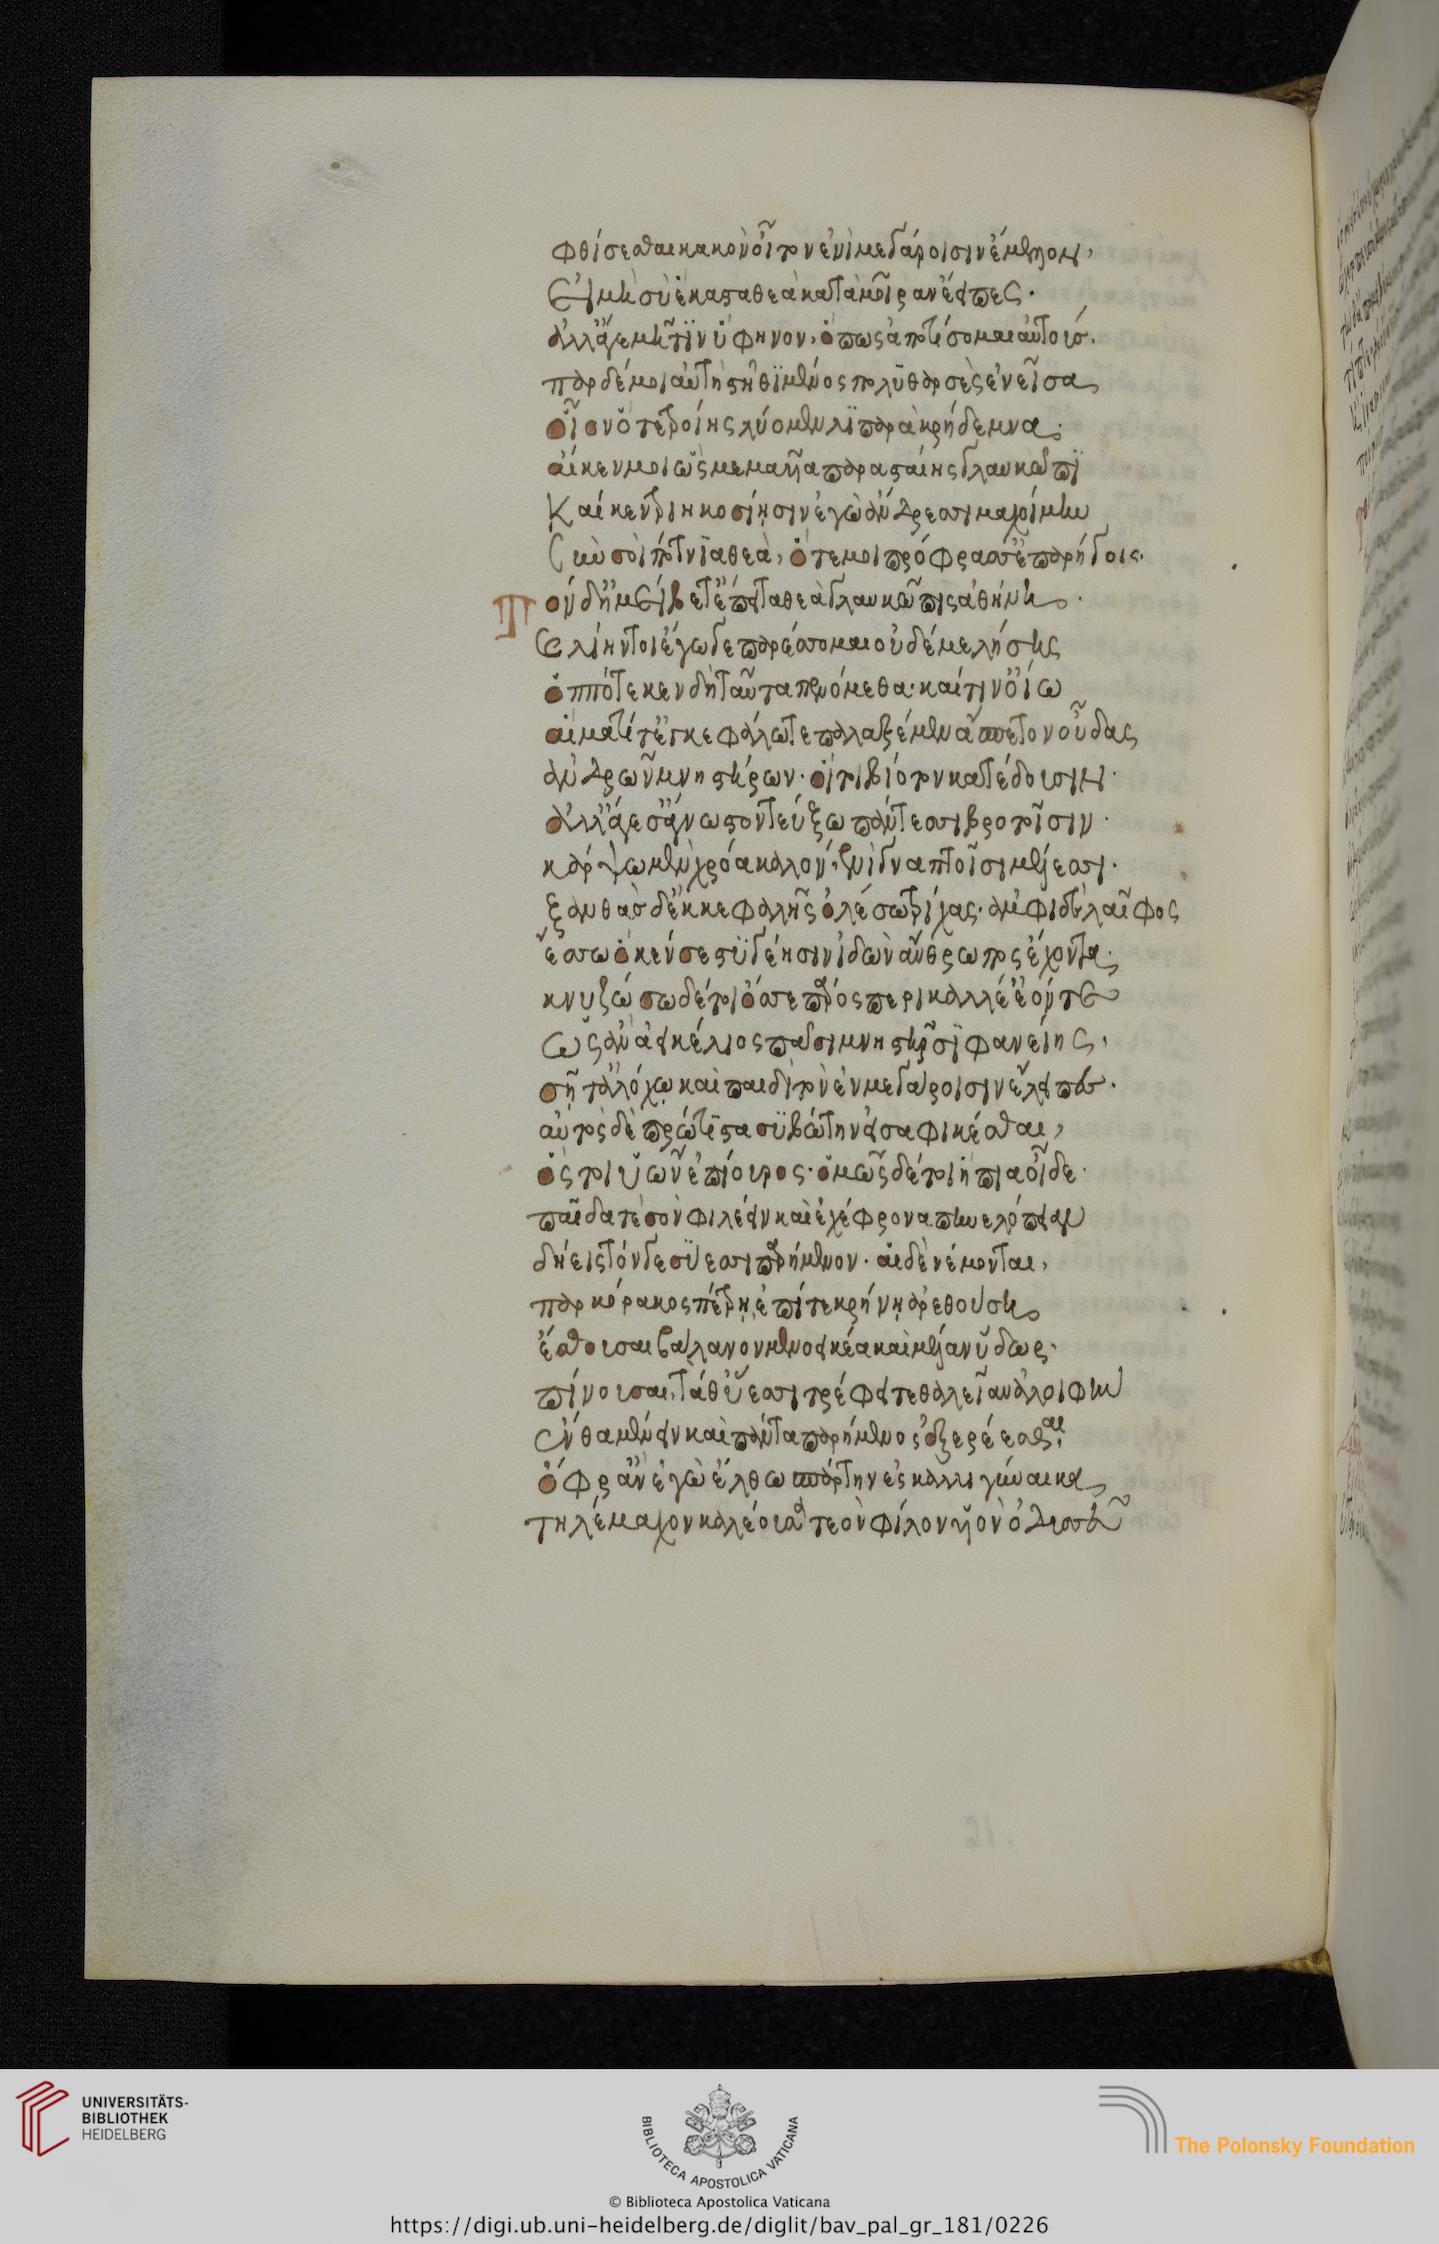 φθίσεσθαι κακὸν οἶτον ἐνὶ μεγάροισιν ἔμελλον,
εἰ μὴ σὺ ἕκαστα θεὰ κατὰ μοῖραν ἔειπες.
ἀλλ' ἄγε μῆτιν ὕφηνον, ὅπως ἀποτίσομαι αὐτούς.
πὰρ δέ μοι αὐτὴ στῆθι μένος πολυθαρσὲς ἐνεῖσα
οἷον ὅτε Τροίης λύομεν λιπαρὰ κρήδεμνα.
αἴ κέν μοι ὣς μεμαῆα παρασταίης γλαυκῶπι
καί κε τριηκοσίησιν ἐγὼν ἄνδρεσσι μαχοίμην
σὺν σοὶ πότνια θεὰ, ὅτε μοι πρόφρασσ' ἐπαρήγοις.
Τὸν δ' ἠμείβετ' ἔπειτα θεὰ γλαυκῶπις ἀθήνη.
καὶ λίην τοι ἔγωγε παρέσσομαι οὐδέ με λήσεις
ὁππότε κεν δὴ ταῦτα πενόμεθα. καί τιν' ὀΐω
αἵματί τ' ἐγκεφάλωτε παλαξέμεν ἄσπετον οὖδας
ἀνδρῶν μνηστήρων. οἵ τοι βίοτον κατέδουσιν.
ἀλλ' ἄγε σ' ἄγνωστον τεύξω πάντεσσι βροτοῖσιν.
κάρψω μὲν χρόα καλὸν, ἐνὶ γναπτοῖσι μέλεσσι.
ξανθὰς δ' ἐκ κεφαλῆς ὀλέσω τρίχας. ἀμφὶ δὲ λαῖφος
ἕσσω ὅ κεν στυγέησιν ἰδὼν ἄνθρωπος ἔχοντα.
κνυζώσω δέ τοι ὄσσε πάρος περικαλλέ' ἐόντε
ὡς ἂν ἀεικέλιος πᾶσι μνηστῆρσι φανείης,
σῇ τ' ἀλόχῳ καὶ παιδὶ τὸν ἐν μεγάροισιν ἔλειπες.
αὐτὸς δὲ πρώτιστα συβώτην εἰσαφικέσθαι,
ὅς τοι ὑῶν ἐπίουρος. ὁμῶς δέ τοι ἤπια οἶδε.
παῖδα τε σὸν φιλέει καὶ ἐχέφρονα πηνελόπειαν
δήεις τόνγε σύεσσι παρήμενον. αἱ δὲ νέμονται,
πὰρ κόρακος πέτρῃ, ἐπί τε κρήνῃ ἀρεθούσῃ
ἔσθουσαι βάλανον μενοεικέα καὶ μέλαν ὕδωρ.
πίνουσαι, τά θ' ὕεσσι τρέφει τεθαλεῖαν ἀλοιφὴν
ἔνθα μένειν καὶ πάντα παρήμενος ἐξερέεσθαι,
ὄφρ' ἂν ἐγὼ ἔλθω σπάρτην ἐς καλλιγύναικα
τηλέμαχον καλέουσα τεὸν φίλον υἱὸν ὀδυσσεῦ
UNIVERSITÄTS-
BIBLIOTHEK
HEIDELBERG
BIBLIOTECA APOSTOLICA VATICANA
The Polonsky Foundation
© Biblioteca Apostolica Vaticana
https://digi.ub.uni-heidelberg.de/diglit/bav_pal_gr_181/0226